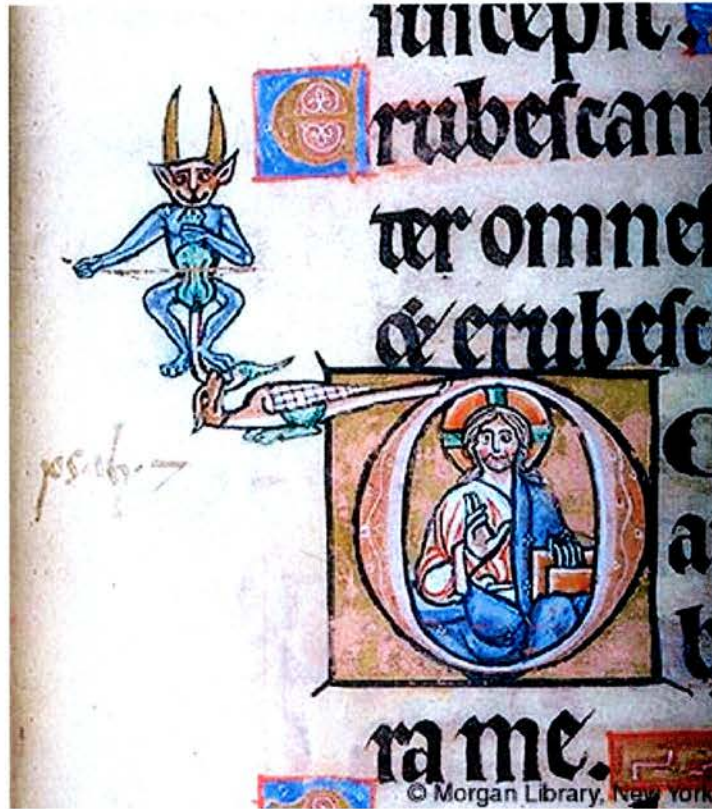 iuscepit.
Erubescant
ter omnes
& erubesc
O E
a
b
ra me.
© Morgan Library, New York